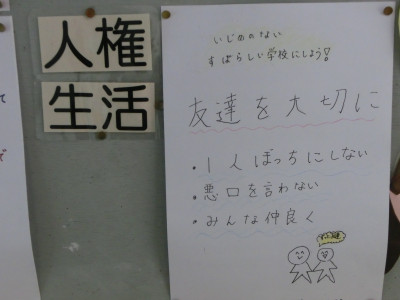 人権
生活
いじめのない
すばらしい学校にしよう！
友達を大切に
・1人ぼっちにしない
・悪口を言わない
・みんな仲良く